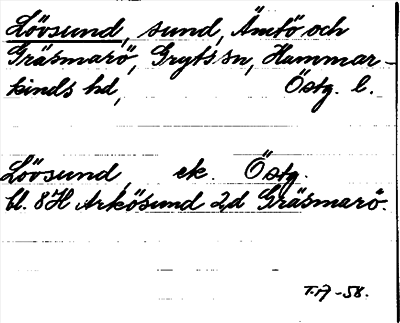 Lövsund, sund, Ämtö och
Gräsmarö, Gryts sn, Hammar-
kinds hd, Östg. l.
Lövsund, ek. Östg.
bl. 8H Arkösund 2d Gräsmarö.
T.A -58.